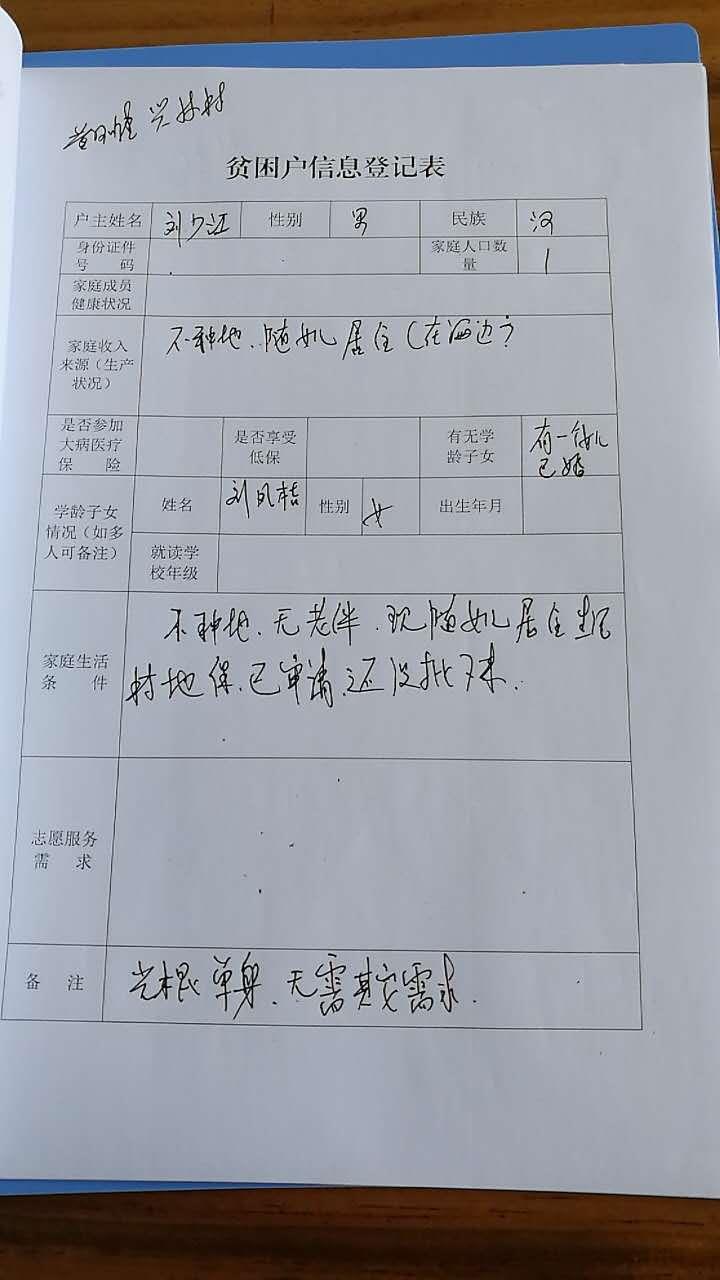 兴林村
贫困户信息登记表
户主姓名 刘少江 性别 男 民族 汉
身份证件
号 码
家庭人口数
量 1
家庭成员
健康状况
家庭收入
来源（生产
状况）
不种地、随女儿居住（在海边）
是否参加
大病医疗
保 险
是否享受
低保
有无学
龄子女
有一女儿
已婚
学龄子女
情况（如多
人可备注）
姓名 刘凤桔 性别 女 出生年月
就读学
校年级
家庭生活
条 件
不种地、无老伴、现随女儿居住生活
村地保、已申请、还没批下来.
志愿服务
需 求
备 注
光棍单身、无需其它需求.